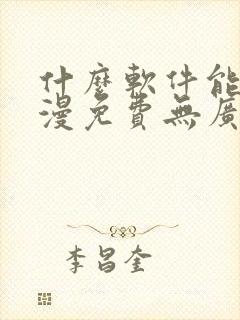 什麼軟件能
漫免費無廣
李昌奎